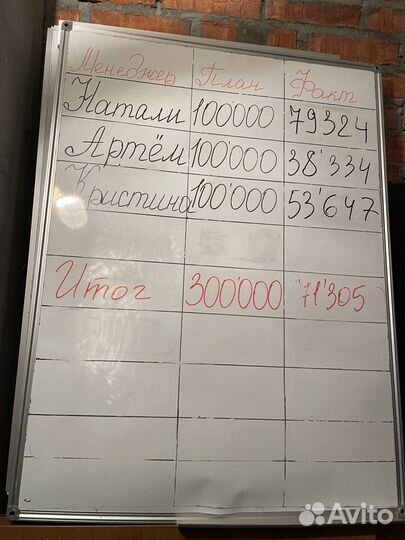 Менеджер План Факт
Натали 100'000 79324
Артём 100'000 38'334
Кристина 100'000 53'647
Итог 300'000 71'305
Avito